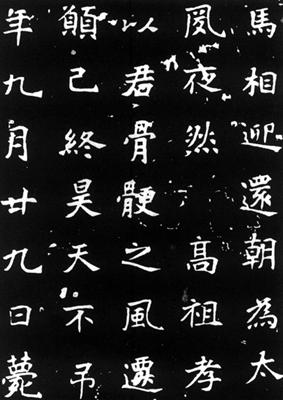 馬相迎還朝為太
夙夜然高祖孝
以君骨骾之風遷
顛已終昊天不吊
年九月廿九日薨